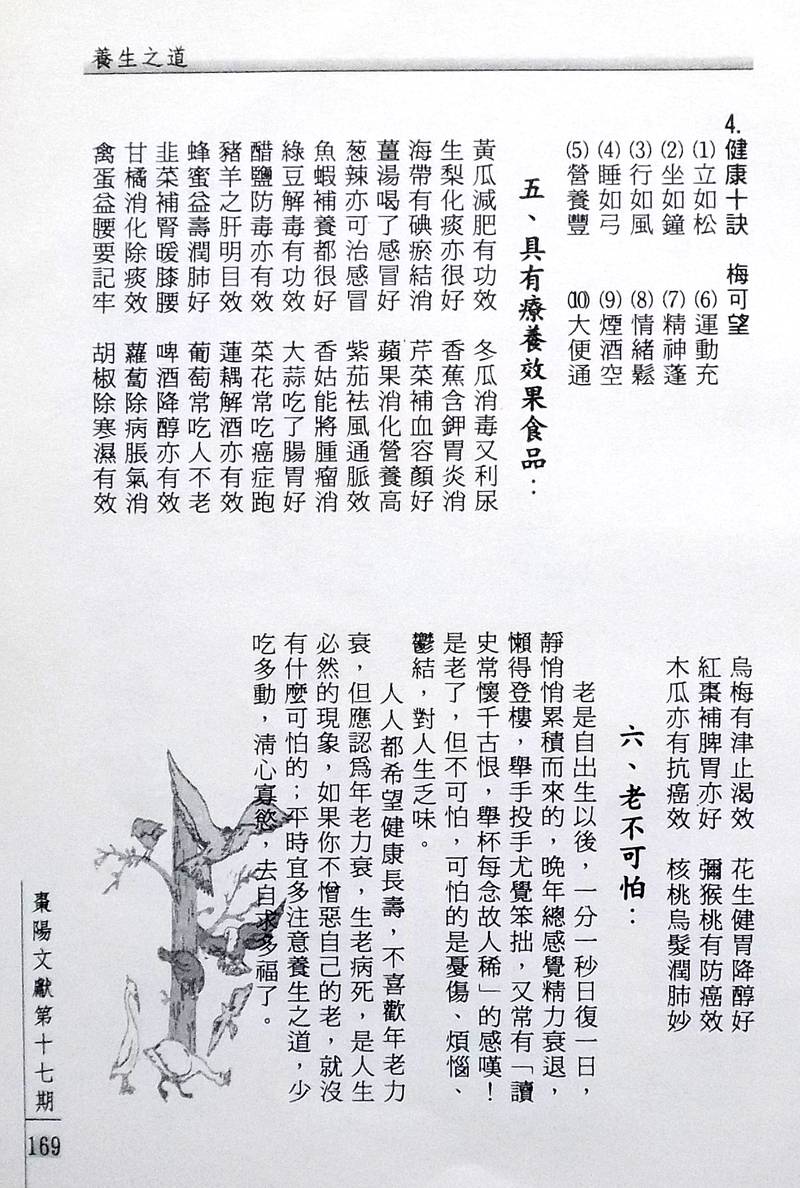 養生之道
4.健康十訣　梅可望
⑴立如松　⑹運動充
⑵坐如鐘　⑺精神蓬
⑶行如風　⑻情緒鬆
⑷睡如弓　⑼煙酒空
⑸營養豐　⑽大便通
五、具有療養效果食品：
黃瓜減肥有功效　冬瓜消毒又利尿
生梨化痰亦很好　香蕉含鉀胃炎消
海帶有碘瘀結消　芹菜補血容顏好
薑湯喝了感冒好　蘋果消化營養高
葱辣亦可治感冒　紫茄袪風通脈效
魚蝦補養都很好　香姑能將腫瘤消
綠豆解毒有功效　大蒜吃了腸胃好
醋鹽防毒亦有效　菜花常吃癌症跑
豬羊之肝明目效　蓮耦解酒亦有效
蜂蜜益壽潤肺好　葡萄常吃人不老
韭菜補腎暖膝腰　啤酒降醇亦有效
甘橘消化除痰效　蘿蔔除病脹氣消
禽蛋益腰要記牢　胡椒除寒濕有效
烏梅有津止渴效　花生健胃降醇好
紅棗補脾胃亦好　彌猴桃有防癌效
木瓜亦有抗癌效　核桃烏髮潤肺妙
六、老不可怕：
老是自出生以後，一分一秒日復一日，
靜悄悄累積而來的，晚年總感覺精力衰退，
懶得登樓，舉手投手尤覺笨拙，又常有「讀
史常懷千古恨，舉杯每念故人稀」的感嘆！
是老了，但不可怕，可怕的是憂傷、煩惱、
鬱結，對人生乏味。
人人都希望健康長壽，不喜歡年老力
衰，但應認為年老力衰，生老病死，是人生
必然的現象，如果你不憎惡自己的老，就沒
有什麼可怕的；平時宜多注意養生之道，少
吃多動，清心寡慾，去自求多福了。
棗陽文獻第十七期
169